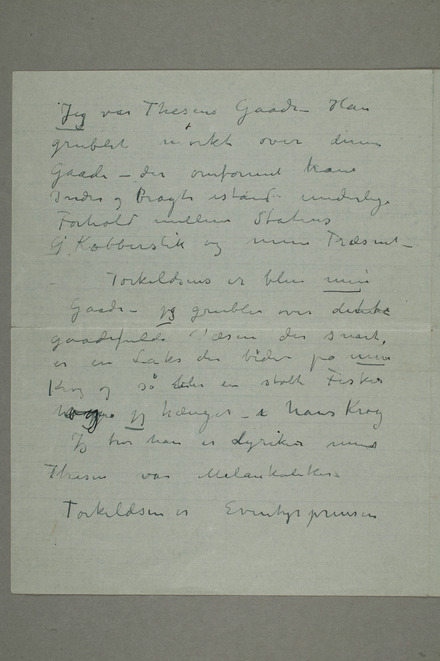 Jeg var Thesens Gaade – Han
grublet mörkt over denne
Gaade – der omformet kane
Indre og Bragte istand underlige
Forhold mellem Statens
Kobberstik og mine Træsnit –
Torkildsens er blevet min
Gaade – jeg grubler over dette
gaadefulde Væsen der snart
er en Laks der bider på min
Krog og så en stolt Fisker
jeg hænger – i hans Krog
Jeg tror han er Lyriker mens
Thesen var Melankoliker
Torkildsen er Eventyrprinsen